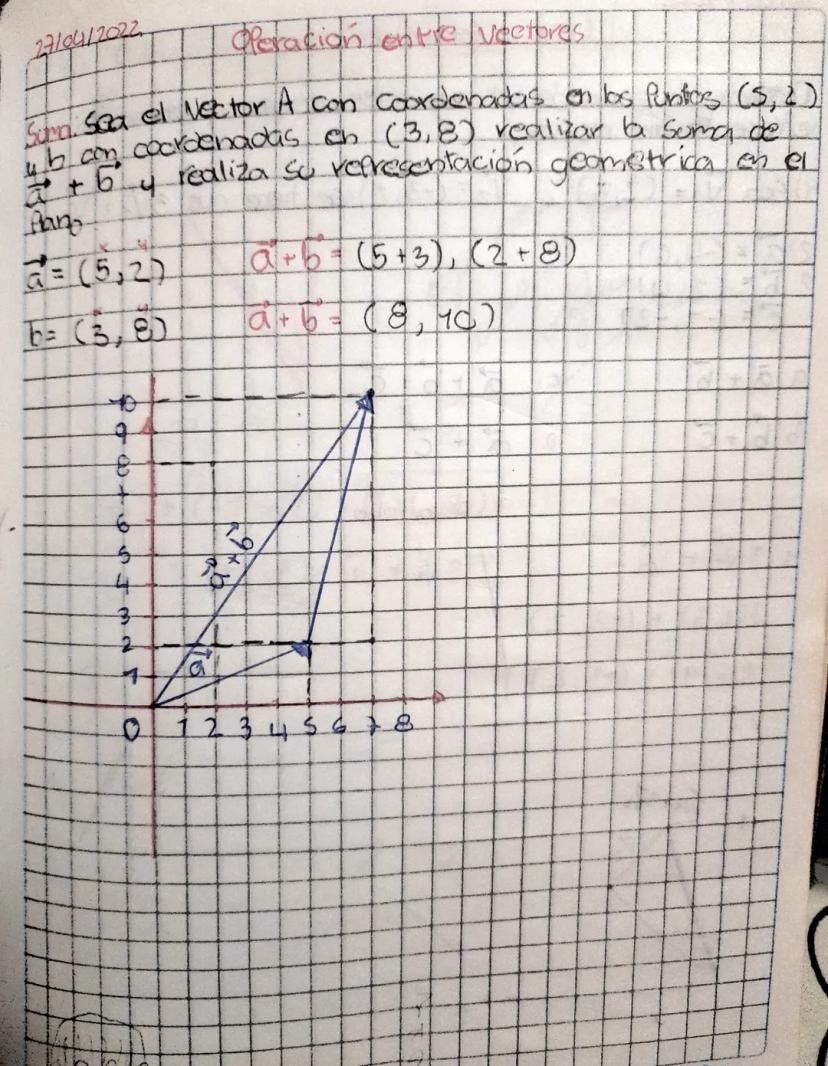 27/04/2022
Operación entre vectores
Suma. Sea el Vector A con coordenadas en los Puntos (5,2)
y b con coordenadas en (3,8) realizar la suma de
a⃗ + b⃗ y realiza su representación geometrica en el
Plano
x y
a⃗ = (5,2) a⃗ + b⃗ = (5+3), (2+8)
x y
b = (3,8) a⃗ + b⃗ = (8, 10)
10
9
8
7
6
5
4
3
2
1
a⃗ + b⃗
a⃗
0 1 2 3 4 5 6 7 8